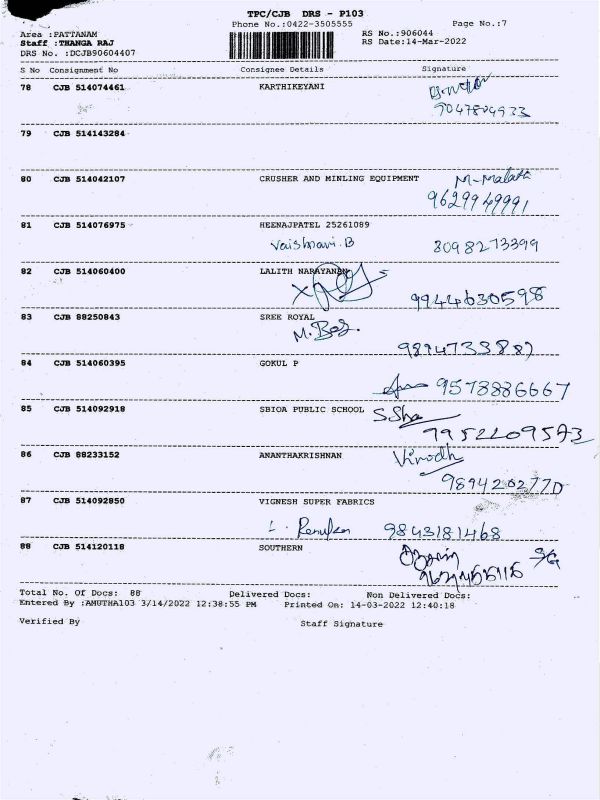 TPC/CJB DRS - P103
Phone No.:0422-3505555
Page No.:7
Area :PATTANAM
RS No.:906044
Staff :THANGA RAJ
RS Date:14-Mar-2022
DRS No. :DCJB90604407
S No Consignment No Consignee Details Signature
78 CJB 514074461 KARTHIKEYANI
79 CJB 514143284
80 CJB 514042107 CRUSHER AND MINLING EQUIPMENT M-Malathi
9629949991
81 CJB 514076975 HEENAJPATEL 25261089
Vaishnavi.B 8098273399
82 CJB 514060400 LALITH NARAYANEN
9944630598
83 CJB 88250843 SREE ROYAL
84 CJB 514060395 GOKUL P
9578886667
85 CJB 514092918 SBIOA PUBLIC SCHOOL S.Sha
9952209573
86 CJB 88233152 ANANTHAKRISHNAN Vinodh
9894202770
87 CJB 514092850 VIGNESH SUPER FABRICS
L. Renuka 9843181468
88 CJB 514120118 SOUTHERN
Total No. Of Docs: 88 Delivered Docs: Non Delivered Docs:
Entered By :AMUTHA103 3/14/2022 12:38:55 PM Printed On: 14-03-2022 12:40:18
Verified By Staff Signature